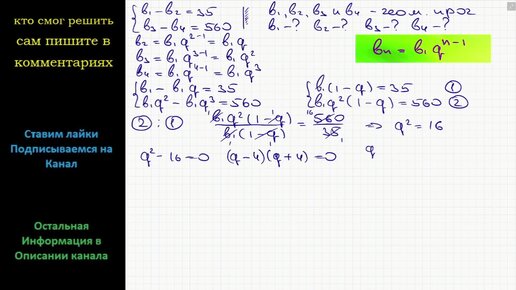 кто смог решить
сам пишите в
комментариях
Ставим лайки
Подписываемся на
Канал
Остальная
Информация в
Описании канала
{ b₁ - b₂ = 35
b₃ - b₄ = 560
b₁, b₂, b₃ и b₄ - геом. прог
b₁ - ? b₂ - ? b₃ - ? b₄ - ?
b₂ = b₁ q²⁻¹ = b₁ q
b₃ = b₁ q³⁻¹ = b₁ q²
b₄ = b₁ q⁴⁻¹ = b₁ q³
bₙ = b₁ qⁿ⁻¹
{ b₁ - b₁ q = 35
b₁ q² - b₁ q³ = 560
{ b₁ (1 - q) = 35 ①
b₁ q² (1 - q) = 560 ②
② : ① b₁ q² (1 - q) / b₁ (1 - q) = 560 / 35 ⇒ q² = 16
q² - 16 = 0 (q - 4)(q + 4) = 0 q